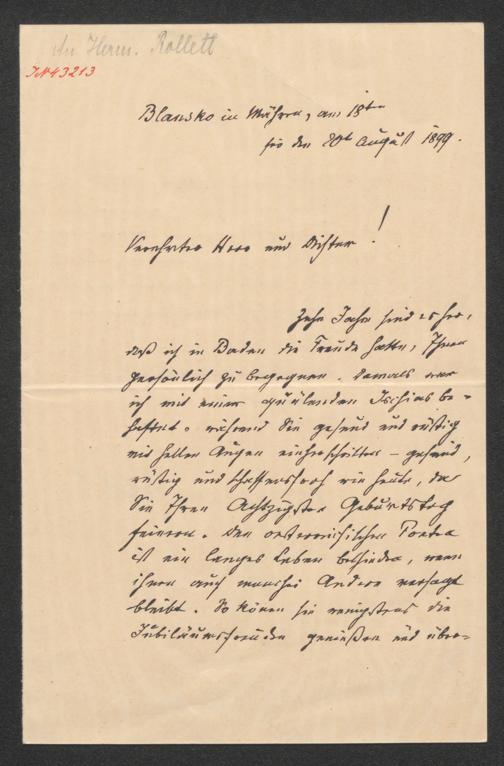 An Herm. Rollett
IN 43213
Blansko in Mähren, am 18ten
für den 20t August 1899.
Verehrter Herr und Dichter!
Zehn Jahre sind es her,
daß ich in Baden die Freude hatte, Ihnen
persönlich zu begegnen. Damals war
ich mit einer quälenden Ischias be-
haftet, während Sie gesund und rüstig
mit hellen Augen einherschritten – gesund,
rüstig und schaffensfroh wie heute, da
Sie Ihren Achtzigsten Geburtstag
feiern. Den oesterreichischen Poeten
ist ein langes Leben beschieden, wenn
ihnen auch manches Andere versagt
bleibt. So können sie wenigstens die
Jubiläumsfreuden genießen und über-